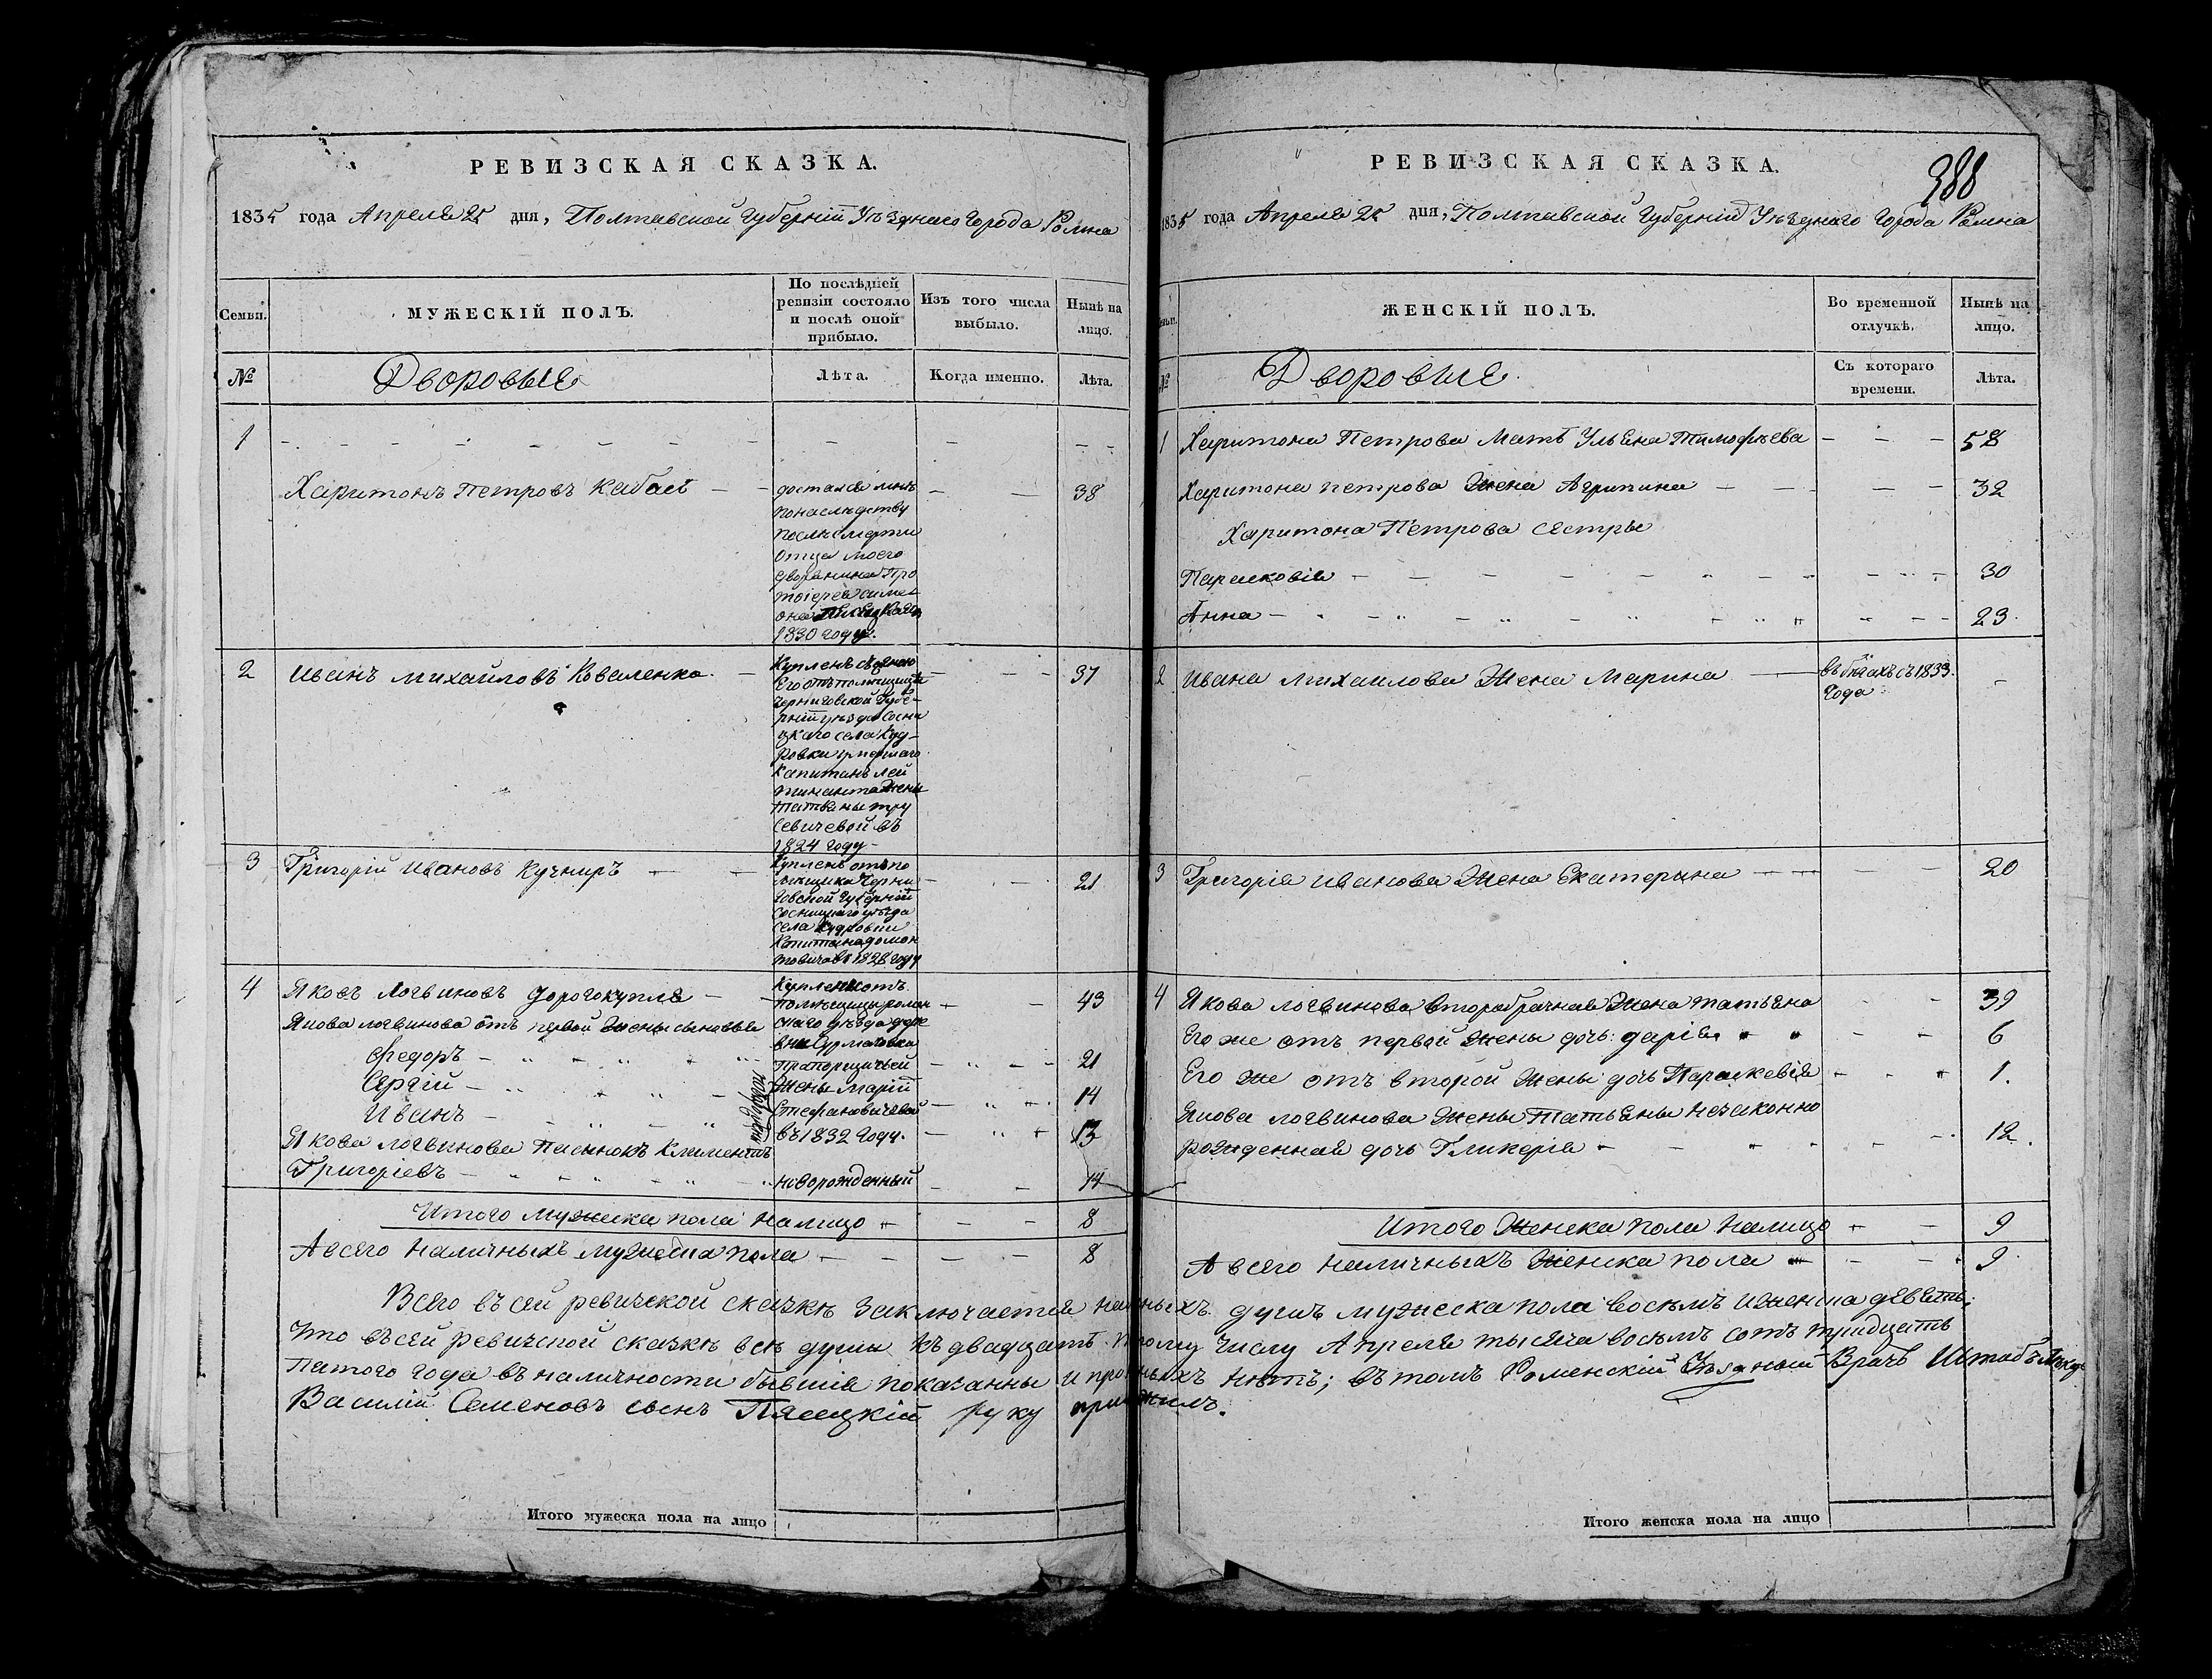 РЕВИЗСКАЯ СКАЗКА.
1835 года Апреля 25 дня, Полтавской Губерніи Уѣзднаго Города Ромна
Семьи.
МУЖЕСКІЙ ПОЛЪ.
По послѣдней
ревизіи состояло
и послѣ оной
прибыло.
Изъ того числа
выбыло.
Нынѣ на
лицо.
№
Дворовые
Лѣта.
Когда именно.
Лѣта.
1
Харитонъ Петровъ Кабасъ
достался мнѣ
по наслѣдству
послѣ смерти
отца моего
дворянина Про
тоіерея Симе
она
1830 году.
38
2 Иванъ Михайловъ Коваленко.
Купленъ съ женою
его отъ помѣщицы
Черниговской Губе-
рніи уѣзда Сосни
цкаго села Куд-
ровки
Капитанъ лей
тинанта жены
Татьяны Тру
севичевой въ
1824 году
37
3 Григорій Ивановъ Кучниръ
Купленъ отъ по
мѣщика Черни
говской Губерніи
Сосницкаго уѣзда
села Кудровки
Капитана Домон
товича въ 1828 году
21
4 Яковъ Логвиновъ Дорогокупля
Якова Логвинова отъ первой жены сыновья
Федоръ
Сергій
Иванъ
Якова Логвинова пасынокъ Климентій
Григоріевъ
Куплены отъ
помѣщицы ромен
скаго уѣзда дере
вни Сурмачовки
Прапорщичьей
жены Маріи
Стефановичевой
въ 1832 году.
новорожденный
43
21
14
13
14
Итого мужеска пола налицо 8
А всего наличныхъ мужеска пола 8
РЕВИЗСКАЯ СКАЗКА.
388
1835 года Апреля 25 дня, Полтавской Губерніи Уѣзднаго Города Ромна
ЖЕНСКІЙ ПОЛЪ.
Во временной
отлучкѣ.
Нынѣ на
лицо.
№
Дворовые.
Съ котораго
времени.
Лѣта.
1 Харитона Петрова Мать Ульяна Тимофѣева 58
Харитона Петрова жена Агрипина 32
Харитона Петрова сестры
Парасковія 30
Анна 23.
2 Ивана Михаилова Жена Марина
въ бѣгахъ съ 1833.
Года
3 Григорія Иванова Жена Екатерина 20
4 Якова Логвинова второбрачная жена Татьяна 39
Его же отъ первой жены дочь: Дарія 6
Его же отъ второй жены дочь Параскевія 1.
Якова Логвинова жены Татьяны незаконно
рожденная дочь Гликерія 12.
Итого женска пола налицо 9
А всего наличныхъ женска пола 9
Всего въ сей ревизской сказкѣ заключается душъ мужеска пола восемь и женска девять;
Что въ сей ревизской сказкѣ всѣ души къ двадцать числу Апреля тысяча восемь сотъ тридцать
пятого года въ наличности бывшія показанны и нѣтъ; въ томъ Роменскій Уѣздный Врачъ Штабъ
Василій Семеновъ сынъ Пясецкій руку приложилъ.
Итого мужеска пола на лицо
Итого женска пола на лицо